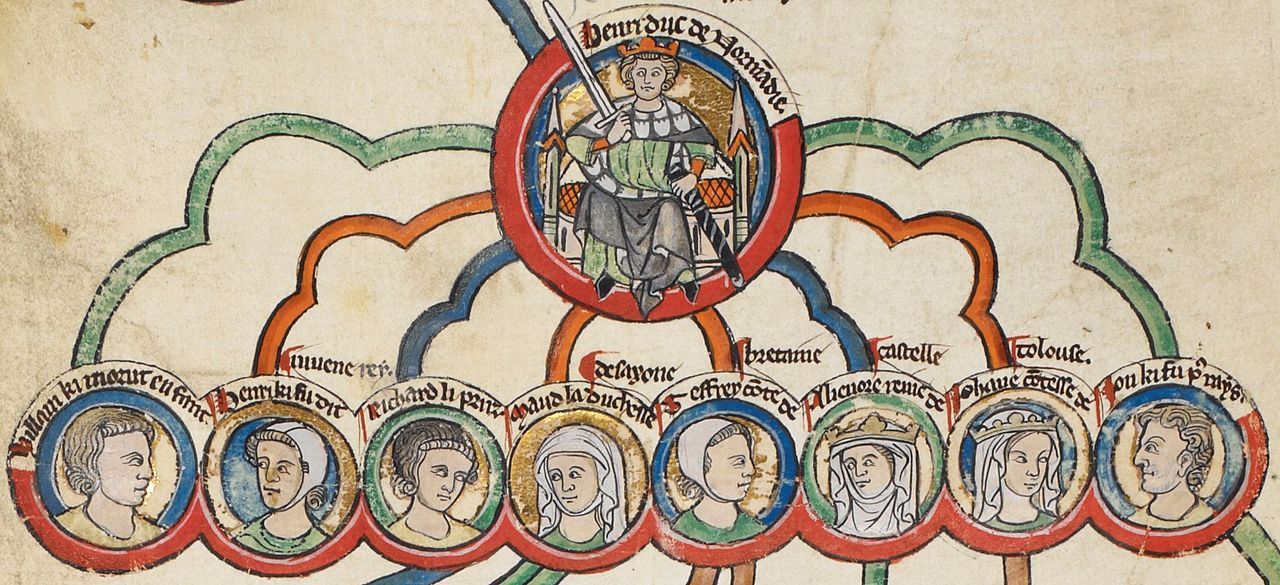 henri duc de Normādie.
Willam ki morut enfant
Henri ki fu dit
iuvene rey.
Richard li prim̄
Maud la duchesse
de saxone
Geffrey cōte de
bretaine
Alienore reine de
castelle
Johane cōtesse de
tolouse.
Jon ki fu p̄ rays